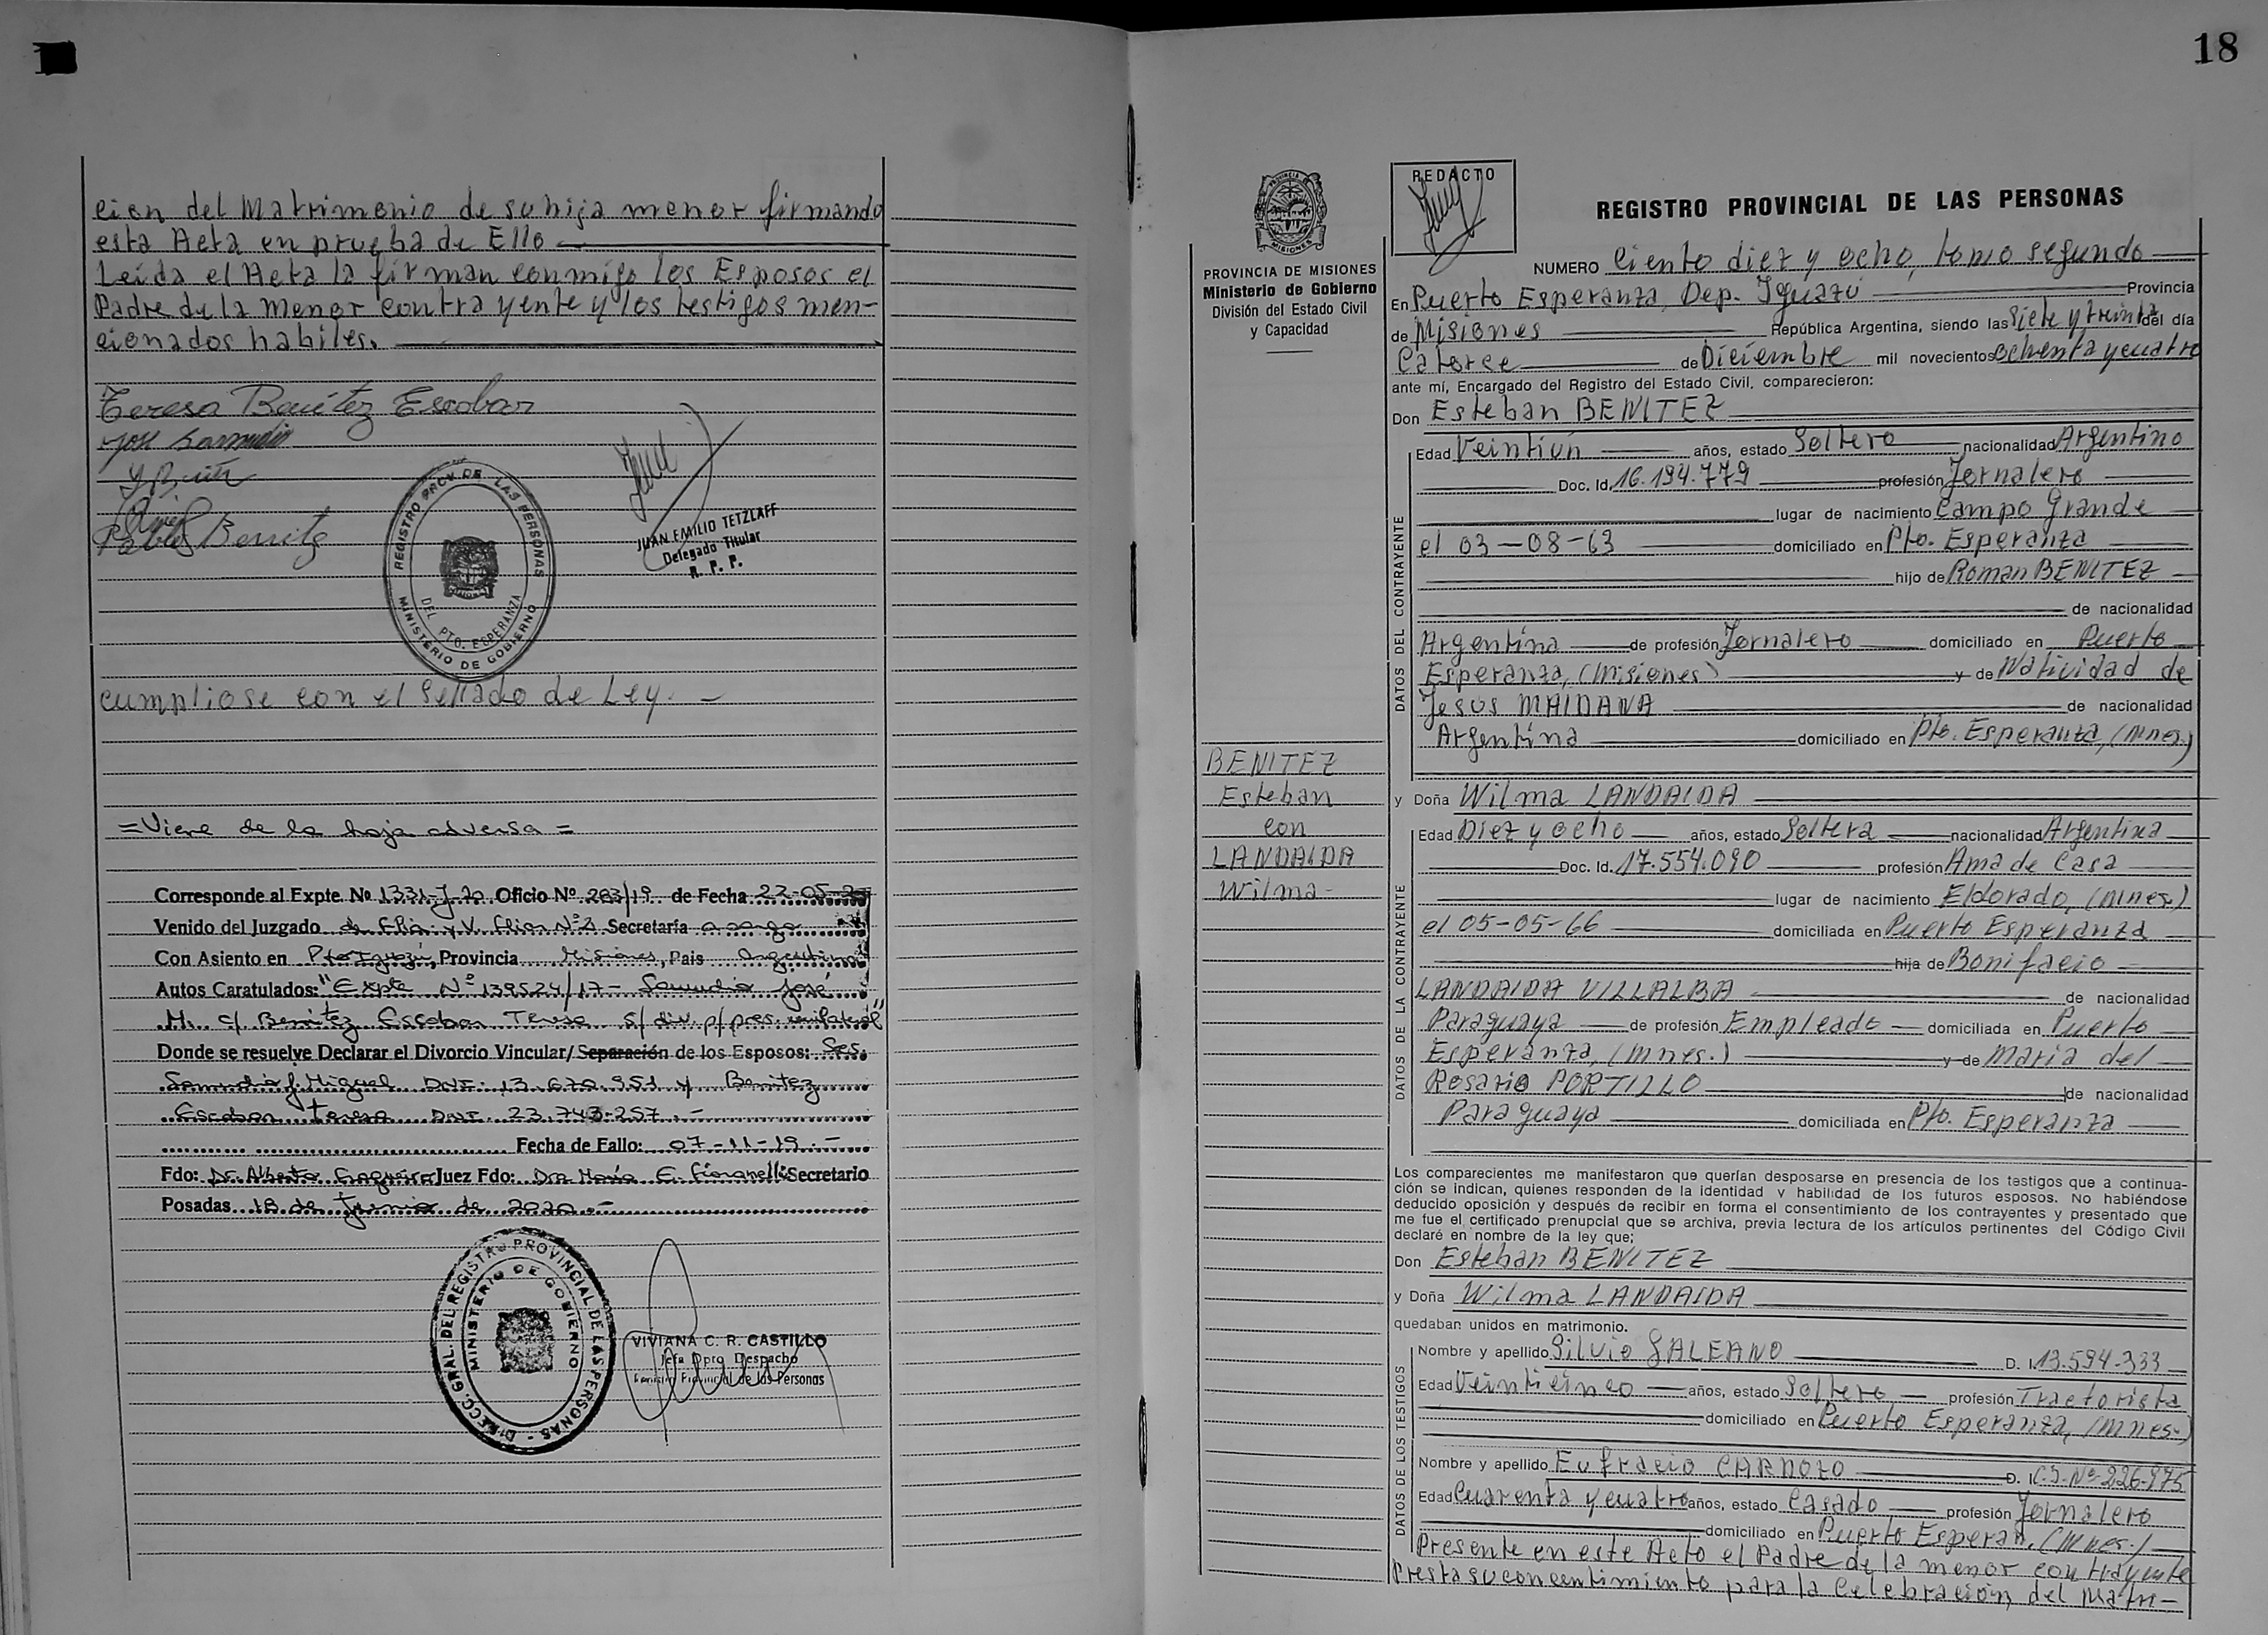 cion del Matrimonio de su hija menor firmando
esta Acta en prueba de Ello
Leída el Acta la firman conmigo los Esposos el
Padre de la Menor contrayente y los testigos men-
cionados habiles.
Teresa Benítez Escobar
José Samudio
Pablo Benitez
REGISTRO PROV. DE LAS PERSONAS
DEL PTO. ESPERANZA
MINISTERIO DE GOBIERNO
JUAN EMILIO TETZLAFF
Delegado Titular
R. P. P.
cumpliose con el Sellado de Ley. -
= Viene de la hoja adversa =
Corresponde al Expte. Nº 1331-J-20 Oficio Nº 263/19 de Fecha 22-05-20
Venido del Juzgado de Flia. y V. Fliar Nº 2 Secretaría a cargo
Con Asiento en Pto Iguazú, Provincia Misiones, Pais Argentina
Autos Caratulados: "Expte Nº 139524/17 - Samudio José
M. c/ Benitez Escobar Teresa s/ div. p/ pres. unilateral"
Donde se resuelve Declarar el Divorcio Vincular/ Separación de los Esposos: Ses.
Samudio J. Miguel DNI: 13.670.951 y Benitez
Escobar Teresa DNI. 23.743.257.-
Fecha de Fallo: 07-11-19.-
Fdo: Dr. Alberto Juez Fdo: Dra María E. Secretario
Posadas 18 de Junio de 2020.-
DIRECC. GRAL. DEL REGISTRO PROVINCIAL DE LAS PERSONAS -
MINISTERIO DE GOBIERNO
VIVIANA C. R. CASTILLO
Jefa Dpto Despacho
Registro Provincial de las Personas
18
PROVINCIA DE MISIONES
PROVINCIA DE MISIONES
Ministerio de Gobierno
División del Estado Civil
y Capacidad
BENITEZ
Esteban
con
LANDAIDA
Wilma-
REDACTO
REGISTRO PROVINCIAL DE LAS PERSONAS
NUMERO Ciento diez y ocho, tomo segundo
En Puerto Esperanza, Dep. Iguazú Provincia
de Misiones República Argentina, siendo las Siete y treinta del día
Catorce de Diciembre mil novecientos Ochenta y cuatro
ante mí, Encargado del Registro del Estado Civil, comparecieron:
Don Esteban BENITEZ
DATOS DEL CONTRAYENTE
Edad Veintiún años, estado Soltero nacionalidad Argentino
Doc. Id. 16.194.779 profesión Jornalero
lugar de nacimiento Campo Grande
el 03-08-63 domiciliado en Pto. Esperanza
hijo de Roman BENITEZ
de nacionalidad
Argentina de profesión Jornalero domiciliado en Puerto
Esperanza, (Misiones) y de Natividad de
Jesús MAIDANA de nacionalidad
Argentina domiciliado en Pto. Esperanza, (Mnes.)
y Doña Wilma LANDAIDA
DATOS DE LA CONTRAYENTE
Edad Diez y ocho años, estado Soltera nacionalidad Argentina
Doc. Id. 17.554.090 profesión Ama de Casa
lugar de nacimiento Eldorado, (Mnes.)
el 05-05-66 domiciliada en Puerto Esperanza
hija de Bonifacio
LANDAIDA VILLALBA de nacionalidad
Paraguaya de profesión Empleado domiciliada en Puerto
Esperanza, (Mnes.) y de María del
Rosario PORTILLO de nacionalidad
Paraguaya domiciliada en Pto. Esperanza
Los comparecientes me manifestaron que querían desposarse en presencia de los testigos que a continua-
ción se indican, quienes responden de la identidad y habilidad de los futuros esposos. No habiéndose
deducido oposición y después de recibir en forma el consentimiento de los contrayentes y presentado que
me fue el certificado prenupcial que se archiva, previa lectura de los artículos pertinentes del Código Civil
declaré en nombre de la ley que;
Don Esteban BENITEZ
y Doña Wilma LANDAIDA
quedaban unidos en matrimonio.
DATOS DE LOS TESTIGOS
Nombre y apellido Silvio GALEANO D. I. 13.594.333
Edad Veinticinco años, estado Soltero profesión Tractorista
domiciliado en Puerto Esperanza, (Mnes.)
Nombre y apellido Eufracio CARDOZO D. I. C.I. Nº 226.975
Edad Cuarenta y cuatro años, estado Casado profesión Jornalero
domiciliado en Puerto Esperan. (Mnes.)
Presente en este Acto el Padre de la menor contrayente
Presta su concentimiento para la Celebración del Matri-